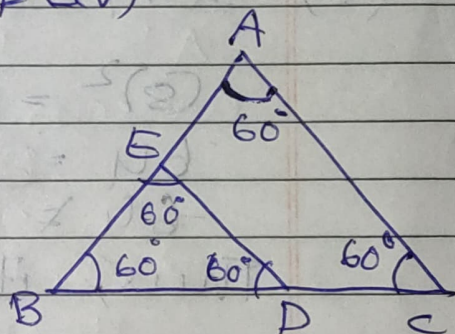 A
60°
E
60°
60° 60° 60°
B D C